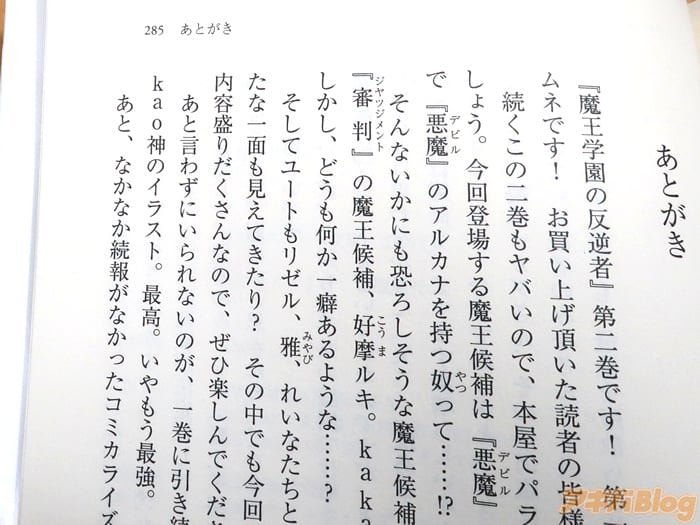 285 あとがき
あとがき
『魔王学園の反逆者』第二巻です! 第
ムネです! お買い上げ頂いた読者の皆様
続くこの二巻もヤバいので、本屋でパラ
しょう。今回登場する魔王候補は『悪魔』
デビル
で『悪魔』のアルカナを持つ奴って……!?
デビル
やつ
そんないかにも恐ろしそうな魔王候補
『審判』の魔王候補、好摩ルキ。kaka
ジヤツジメント
こうま
しかし、どうも何か一癖あるような……?
そしてユートもリゼル、雅、れいなたちと
みやび
たな一面も見えてきたり? その中でも今回
内容盛りだくさんなので、ぜひ楽しんでくだ
あと言わずにいられないのが、一巻に引き続
kao神のイラスト。最高。いやもう最強。
あと、なかなか続報がなかったコミカライズ
アキバBlog